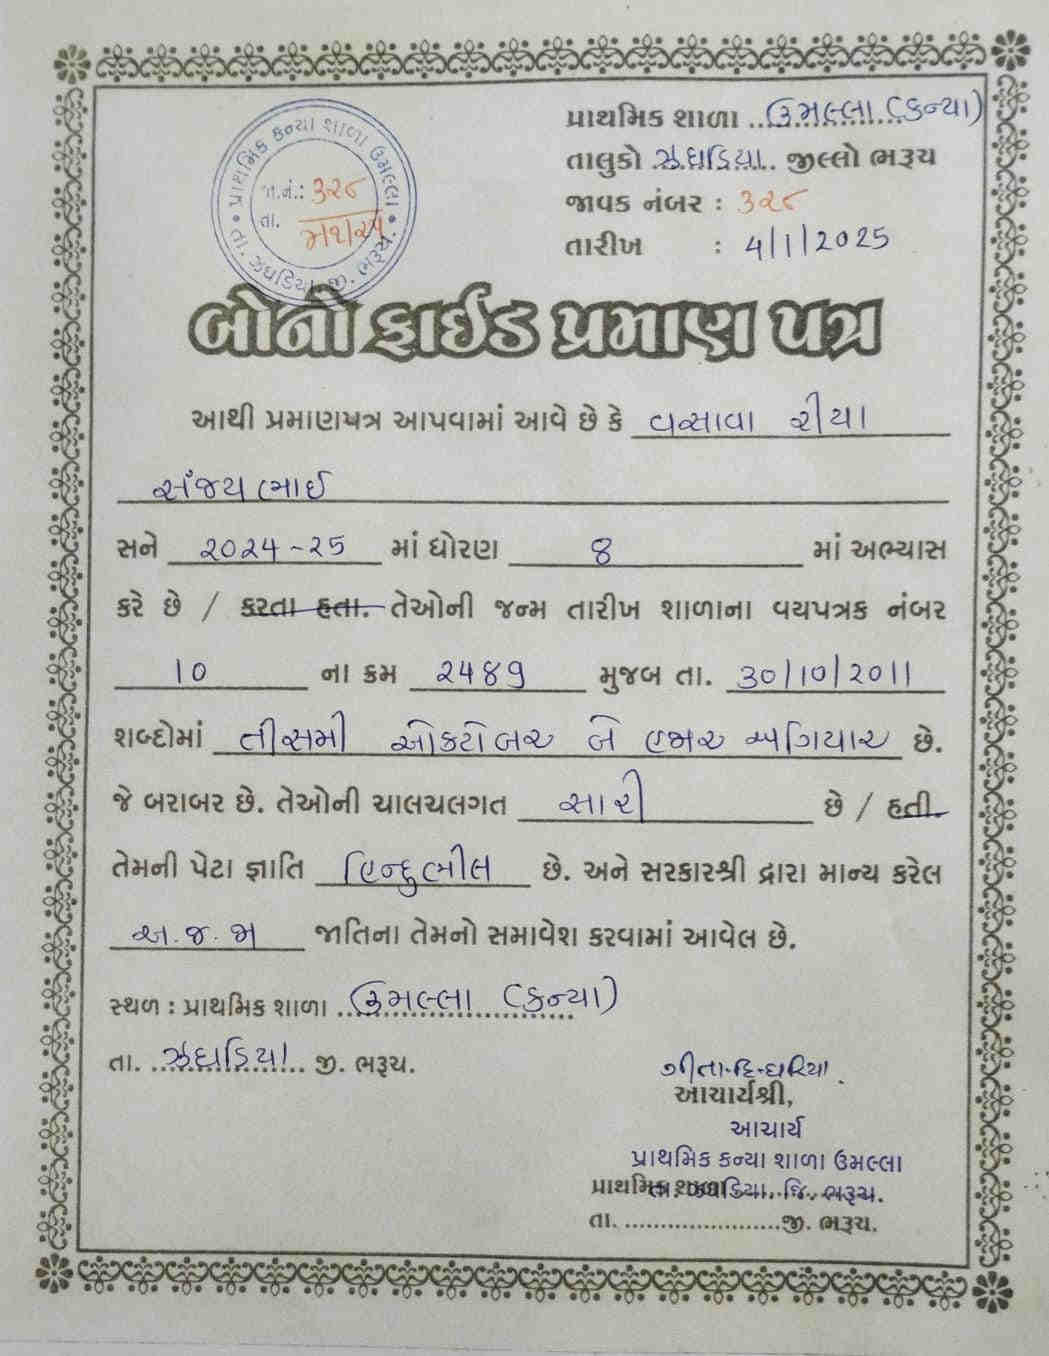 પ્રાથમિક શાળા ..ઉમલ્લા (કન્યા)
તાલુકો ઝઘડિયા.. જીલ્લો ભરૂચ
જાવક નંબર : ૩૨૮
તારીખ : 4/1/2025
પ્રાથમિક કન્યા શાળા ઉમલ્લા
જા.નં.: ૩૨૮
તા.
તા. ઝઘડિયા, જી. ભરૂચ.
બોનોફાઈડ પ્રમાણ પત્ર
આથી પ્રમાણપત્ર આપવામાં આવે છે કે વસાવા રીયા
સંજયભાઈ
સને ૨૦૨૪-૨૫ માં ધોરણ ૪ માં અભ્યાસ
કરે છે / કરતા હતા. તેઓની જન્મ તારીખ શાળાના વયપત્રક નંબર
10 ના ક્રમ ૨૪૪૧ મુજબ તા. 30/10/2011
શબ્દોમાં તીસમી ઓકટોબર બે હજાર અગિયાર છે.
જે બરાબર છે. તેઓની ચાલચલગત સારી છે / હતી.
તેમની પેટા જ્ઞાતિ હિન્દુભીલ છે. અને સરકારશ્રી દ્વારા માન્ય કરેલ
અ.જ.જા જાતિના તેમનો સમાવેશ કરવામાં આવેલ છે.
સ્થળ : પ્રાથમિક શાળા ..ઉમલ્લા (કન્યા)
તા. ..ઝઘડિયા.. જી. ભરૂચ.
આચાર્યશ્રી,
આચાર્ય
પ્રાથમિક કન્યા શાળા ઉમલ્લા
તા. ઝઘડિયા. જિ. ભરૂચ.
પ્રાથમિક શાળા
તા. .......................જી. ભરૂચ.